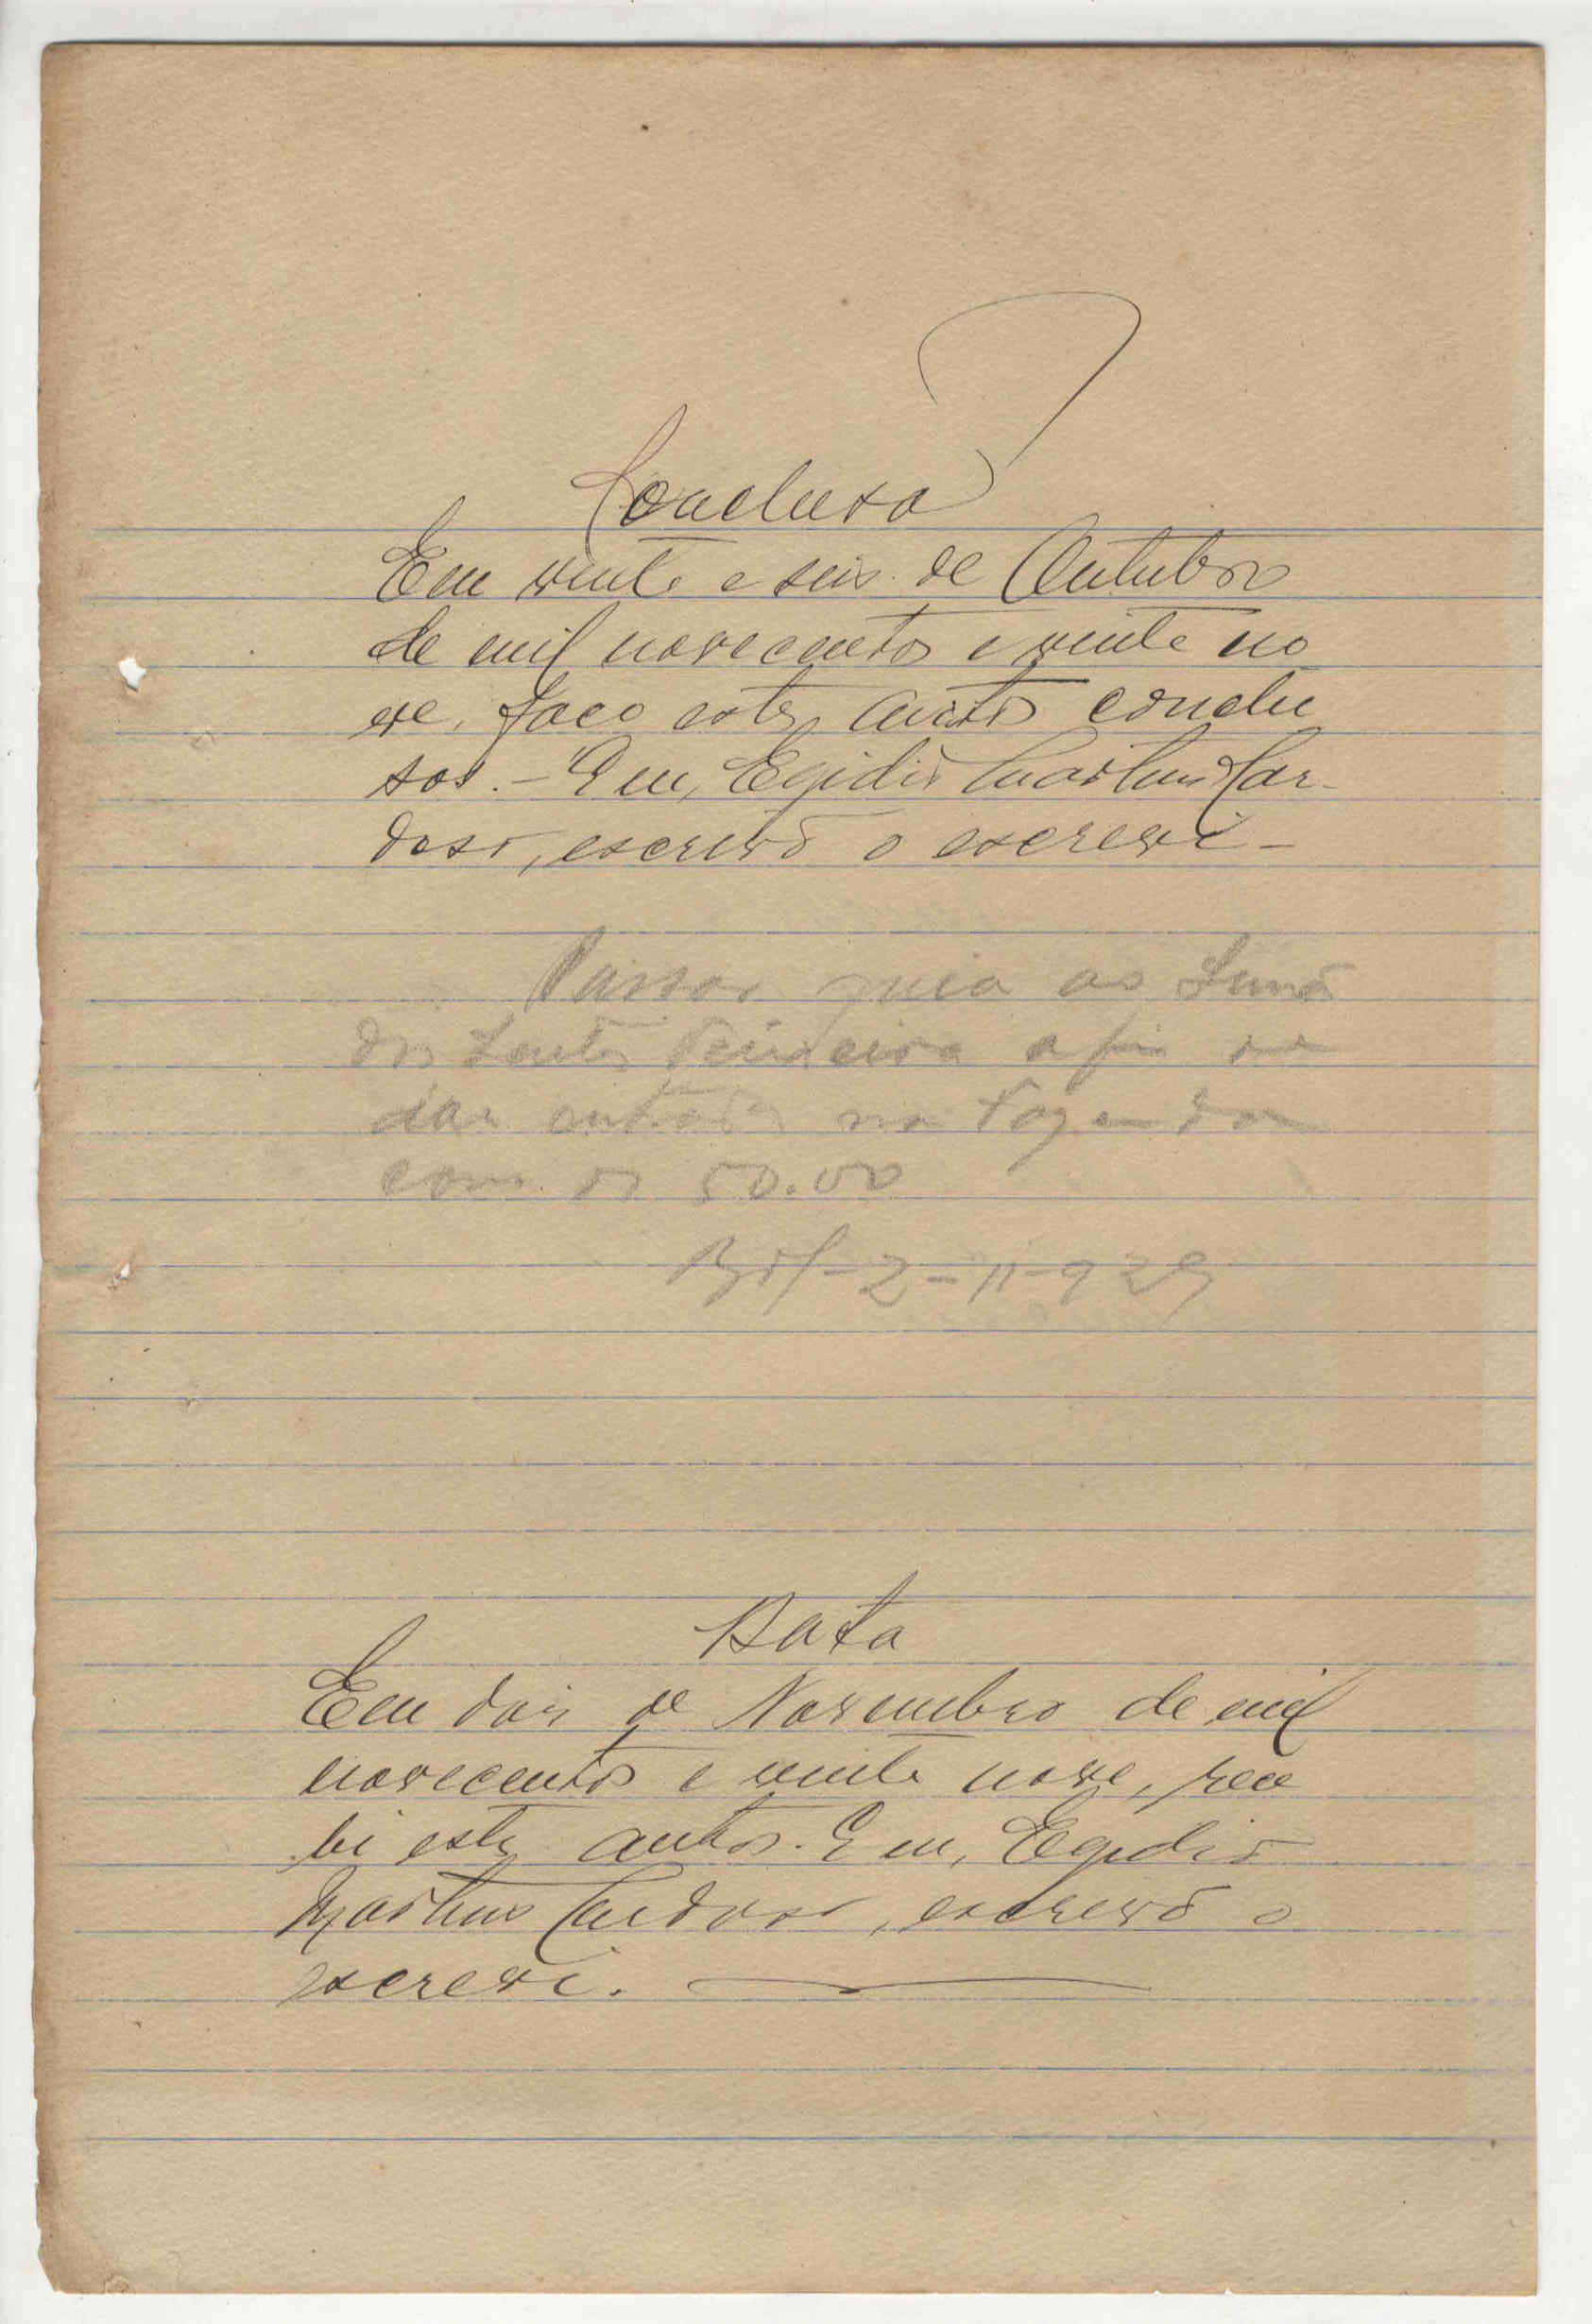 Concluso
Em vinte e seis de Outubro
de mil novecentos e vinte no
ve, faço estes autos conclu
sos. - Eu, Egidio Martins Car-
doso, escrivõ o escrevi -
Passar guia ao
dos Santos Teixeira a fim de
dar entrada na Fazenda
com os 50.00
2-11-929
Data
Em dois de Novembro de mil
novecentos e vinte nove, rece
bi estes autos. Eu, Egidio
Martins Cardoso, escrivõ o
escrevi.